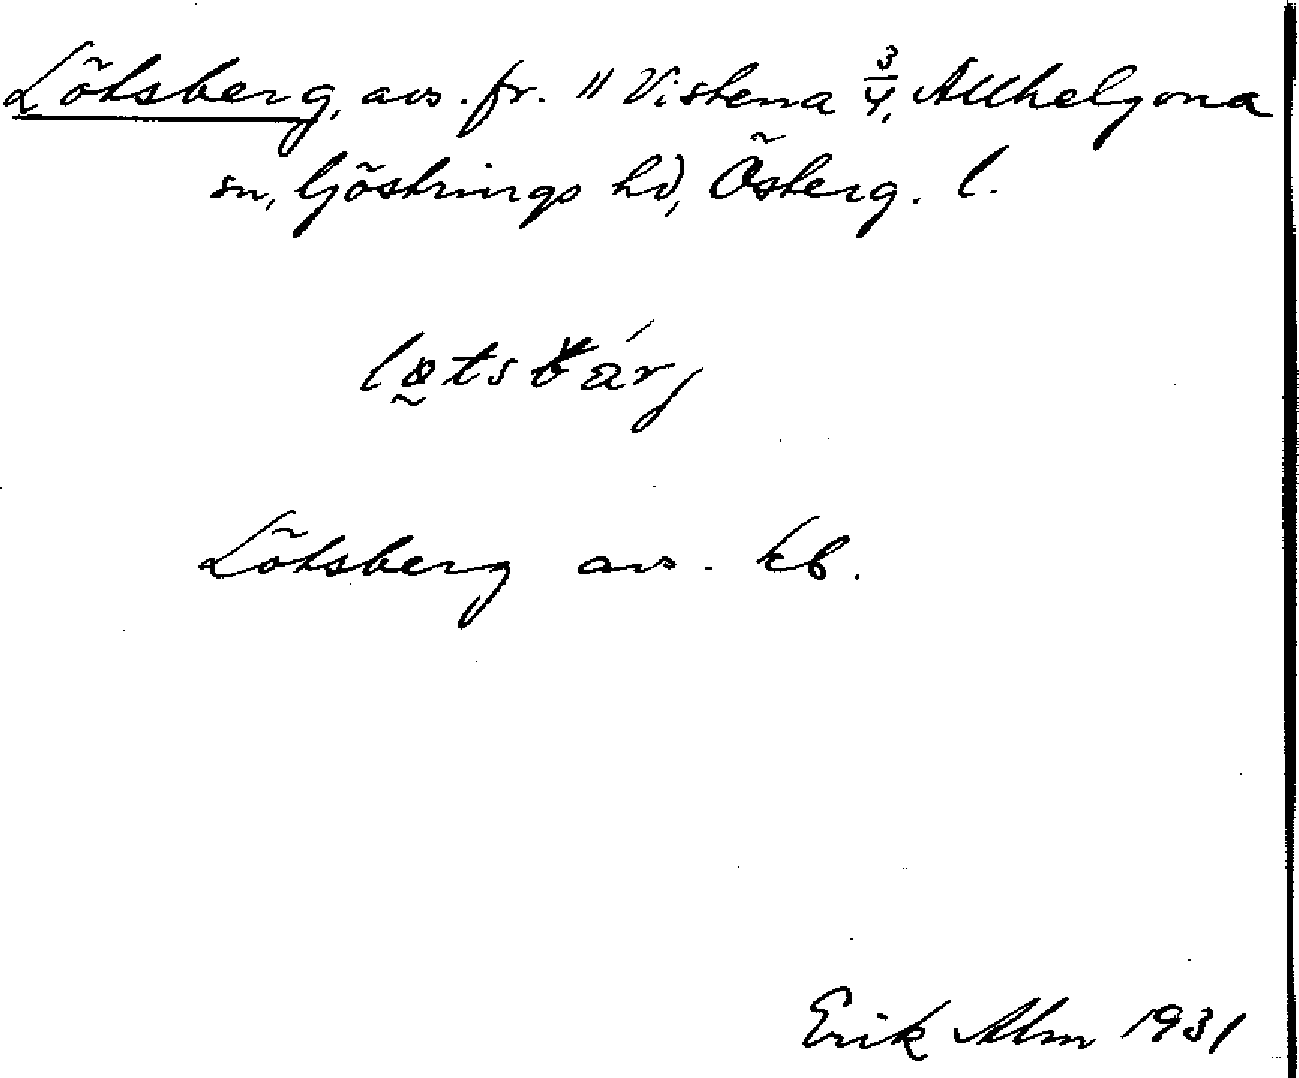 Lötsberg, avs. fr. " Vistena 3/4, Allhelgona
sn, Göstrings hd, Österg. l.
Lötsberg avs. kb.
Erik Alm 1931